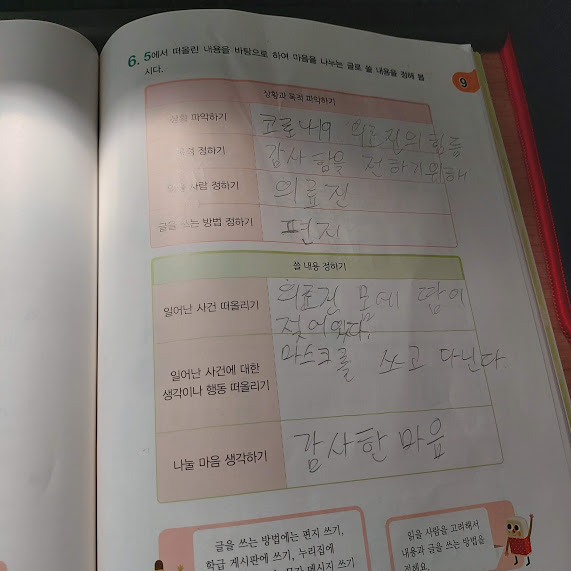 6. 5에서 떠올린 내용을 바탕으로 하여 마음을 나누는 글로 쓸 내용을 정해 봅
시다.
9
상황과 목적 파악하기
상황 파악하기
코로나19 의료진의 힘듬
목적 정하기
감사함을 전하기위해
읽을 사람 정하기
의료진
글을 쓰는 방법 정하기
편지
쓸 내용 정하기
일어난 사건 떠올리기
의료진 모에 땀이
젖어있다.
일어난 사건에 대한
생각이나 행동 떠올리기
마스크를 쓰고 다닌다.
나눌 마음 생각하기
감사한 마음
글을 쓰는 방법에는 편지 쓰기,
학급 게시판에 쓰기, 누리집에
메시지 쓰기
읽을 사람을 고려해서
내용과 글을 쓰는 방법을
정해요.